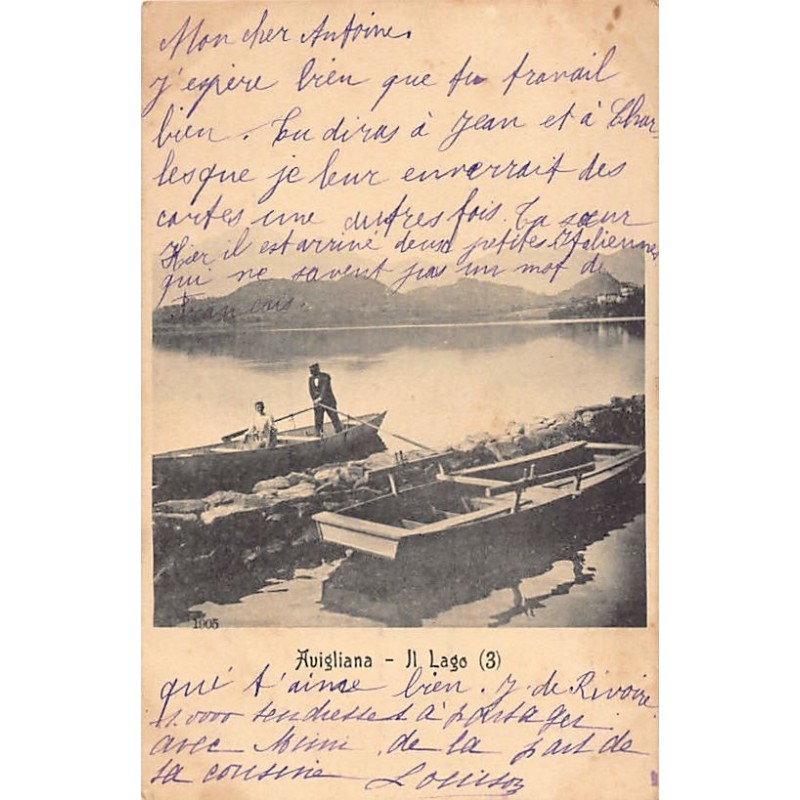 Mon cher Antoine.
j'espère bien que tu travail
bien. Tu diras à Jean et à Char-
lesque je leur enverrait des
cartes une autres fois. Ta sœur
Hier il est arrivé deux petites Italiennes
qui ne savent pas un mot de
Français.
1005
Avigliana - Il Lago (3)
qui t'aime bien. J. de Rivoire
1.000 tendresses à partager
avec Mimi de la part de
ta cousine Louison